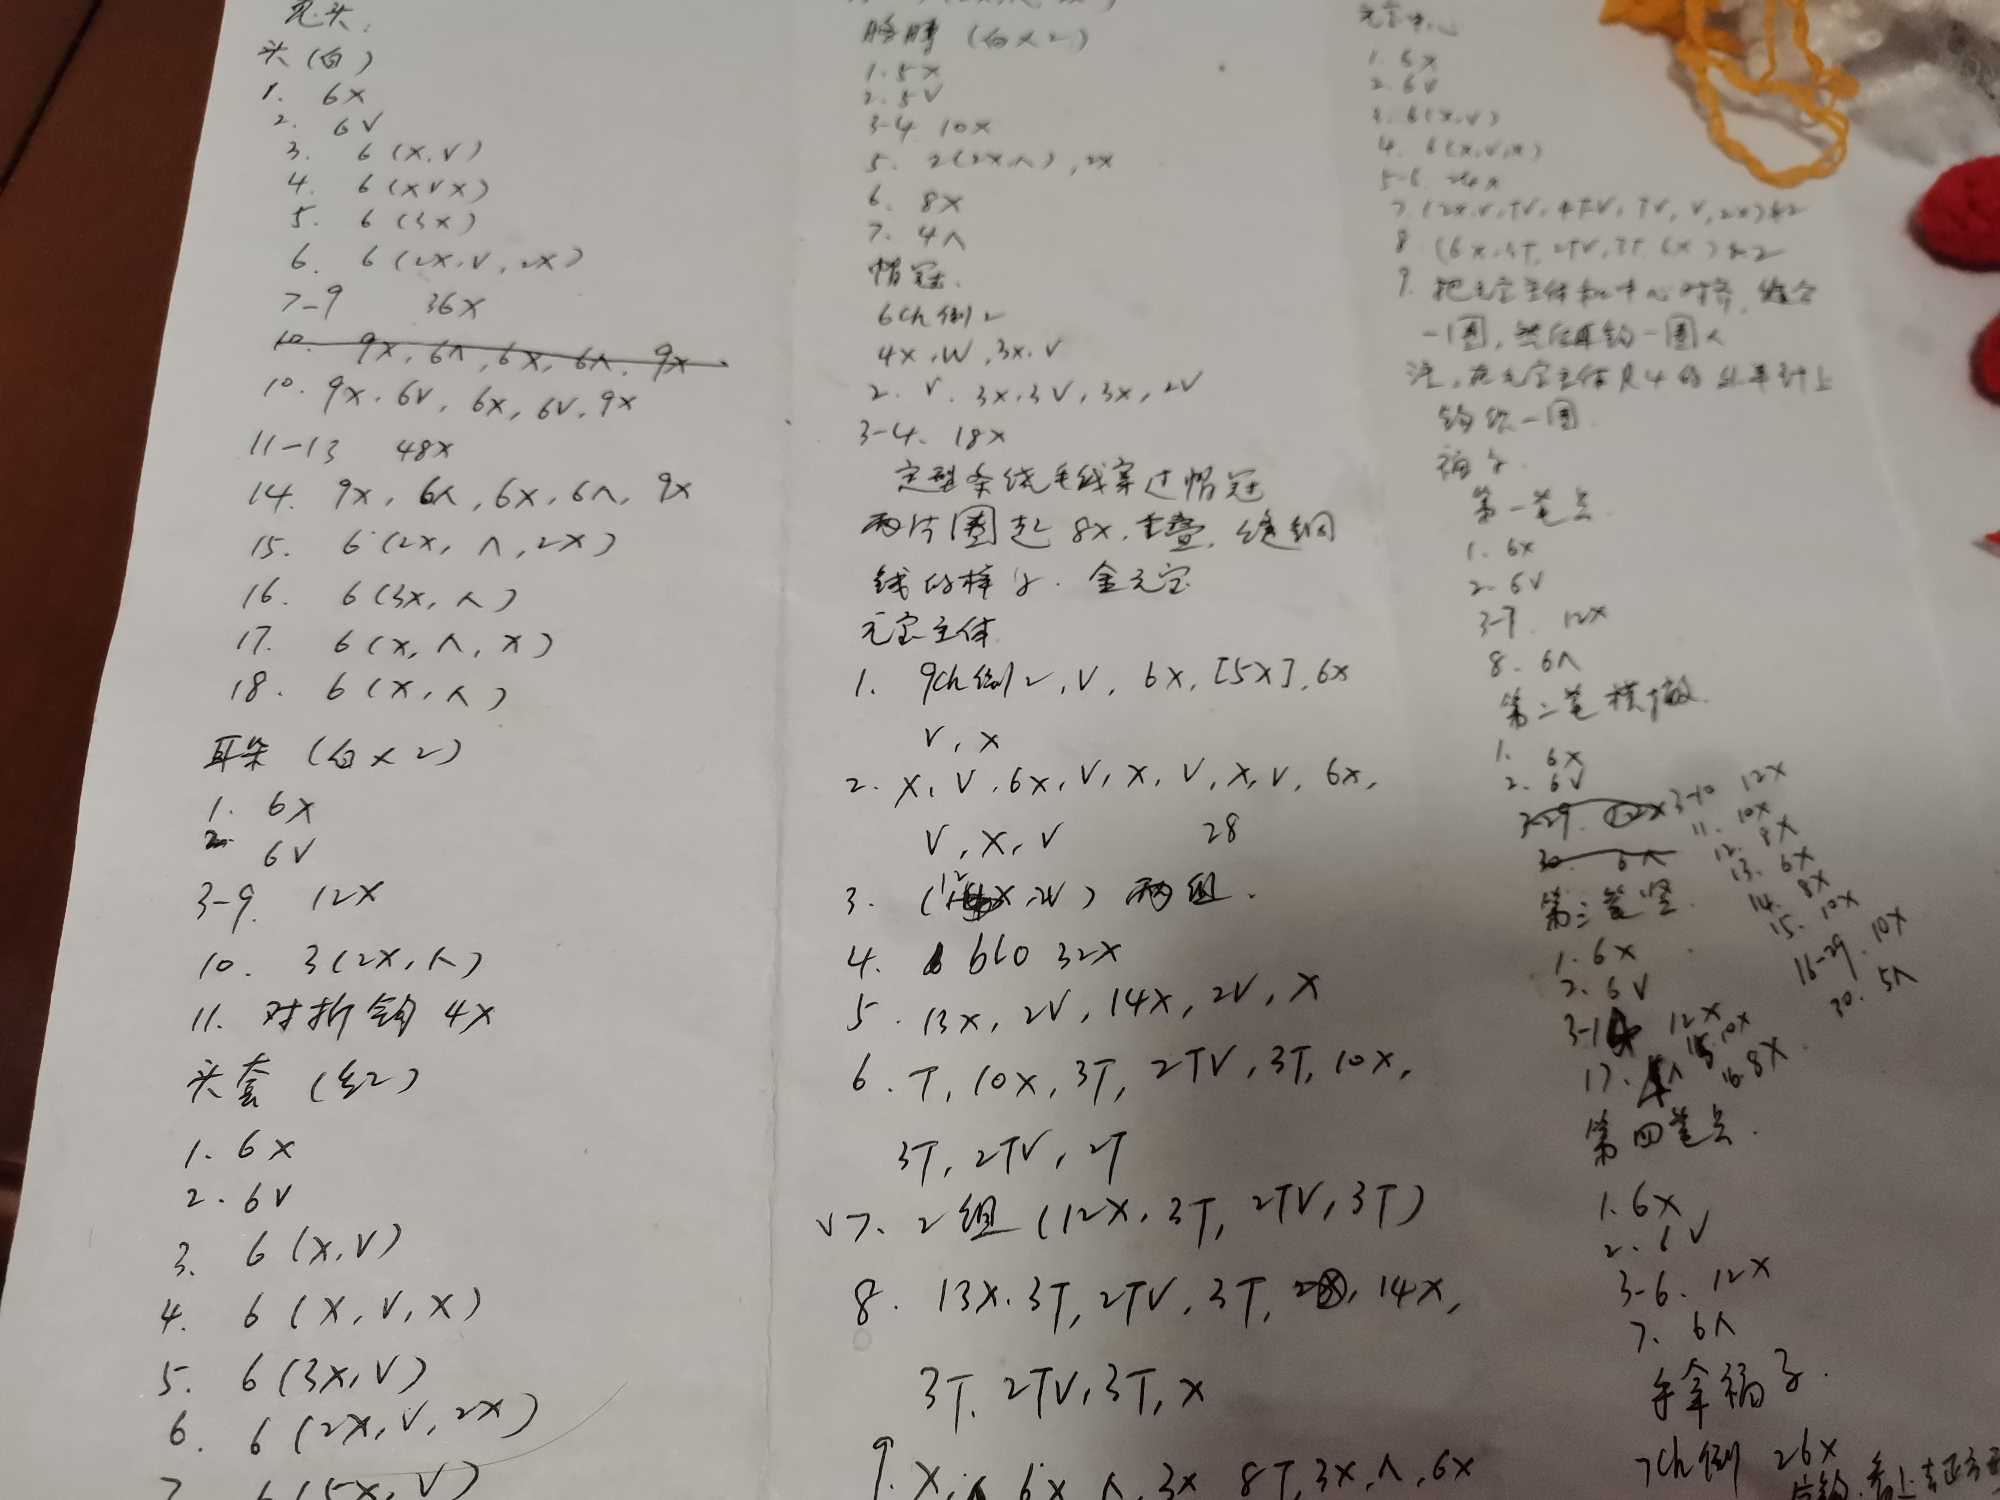 头(白)
1. 6X
2. 6V
3. 6(X.V)
4. 6(XVX)
5. 6(3X)
6. 6(2X.V,2X)
7-9 36X
10. 9X,6Λ,6X,6Λ.9X
10. 9X.6V,6X,6V.9X
11-13 48X
14. 9X,6Λ,6X,6Λ,9X
15. 6(2X,Λ,2X)
16. 6(3X,Λ)
17. 6(X,Λ,X)
18. 6(X,Λ)
耳朵(白X2)
1. 6X
2. 6V
3-9. 12X
10. 3(2X,Λ)
11. 对折钩 4X
头套(红2)
1. 6X
2. 6V
3. 6(X,V)
4. 6(X,V,X)
5. 6(3X,V)
6. 6(2X,V,2X)
7 6(5X,V)
胳膊(白X2)
1.5X
2.5V
3-4 10X
5. 2(2X,Λ),2X
6. 8X
7. 4Λ
帽冠.
6ch倒2
4X,W,3X.V
2. V.3X.3V,3X,2V
3-4. 18X
定型条绕毛线穿过帽冠
两片圈起8X.重叠.缝铜
钱的样子. 金元宝
元宝主体.
1. 9ch倒2,V,6X,[5X],6X
V,X
2. X,V,6X,V,X,V,X,V,6X,
V,X,V 28
3. (12X,2V)两组.
4. blo 32X
5. 13X,2V,14X,2V,X
6. T,10X,3T,2TV,3T,10X,
3T,2TV,2T
V7. 2组(12X.3T,2TV,3T)
8. 13X.3T,2TV,3T, 14X,
3T.2TV,3T,X
9.X,Λ 6X Λ.3X 8T,3X,Λ,6X
元宝中心
1. 6X
2. 6V
3. 6(X.V)
4. 6(X,V,X)
5-6. 24X
7. (2X.V,TV,4TV,TV,V,2X)X2
8. (6X.3T,2TV,3T.6X)X2
9. 把元宝主体和中心对齐,缝合
一圈,然后再钩一圈X
注,在元宝主体R4的 半针上
钩织一圈.
福子.
第一笔点
1. 6X
2. 6V
3-7. 12X
8. 6Λ
第二笔横撇.
1. 6X
2. 6V
3-29. 12X
30. 6Λ
3-10 12X
11. 10X
12. 8X
13. 6X
14. 8X
15. 10X
16-29. 10X
30. 5Λ
第三笔竖.
1. 6X
2. 6V
3-14 12X
15. 10X
16. 8X
17. 4Λ
第四笔点.
1. 6X
2. 6V
3-6. 12X
7. 6Λ
手拿福子.
7ch倒 26X